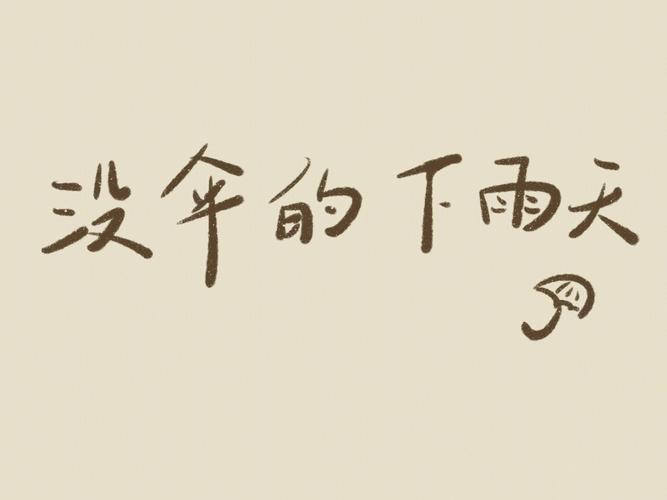 没伞的下雨天